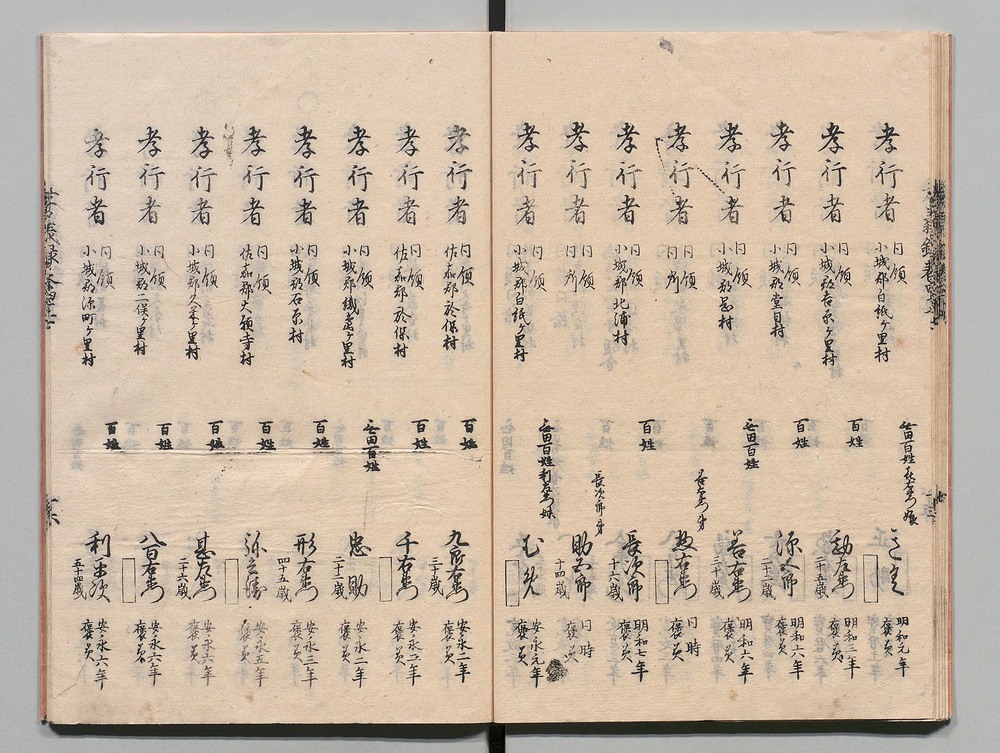 孝行者 同領 小城郡白紙ヶ里村
明和元年 褒美
孝行者 同領 小城郡吉原ヶ里村 百姓 勘右衛門 二十五歳
明和三年 褒美
孝行者 同領 小城郡堂目村 百姓 源五郎 二十二歳
明和六年 褒美
孝行者 同領 村 無田百姓 善右衛門 三十歳
明和六年 褒美
孝行者 同領 同所 善右衛門弟 惣右衛門
同時 褒美
孝行者 同領 小城郡北浦村 百姓 長次郎 十六歳
明和七年 褒美
孝行者 同領 同所 長次郎弟 助五郎 十四歳
同時 褒美
孝行者 同領 小城郡白紙ヶ里村 無田百姓利右衛門妹
安永元年 褒美
孝行者 同領 佐嘉郡於保村 百姓 九郎右衛門 三十歳
安永二年 褒美
孝行者 佐嘉郡於保村 百姓 千右衛門
安永二年 褒美
孝行者 同領 小城郡織島ヶ里村 無田百姓 忠助 二十二歳
安永二年 褒美
孝行者 同領 小城郡石原村 百姓 形右衛門 四十五歳
安永三年 褒美
孝行者 同領 佐嘉郡大願寺村 百姓
安永五年 褒美
孝行者 同領 小城郡久米ヶ里村 百姓 甚右衛門 二十六歳
安永六年 褒美
孝行者 同領 小城郡二俣ヶ里村 百姓 八百右衛門
安永六年 褒美
孝行者 同領 小城郡源町ヶ里村 百姓 利平次 五十四歳
安永六年 褒美